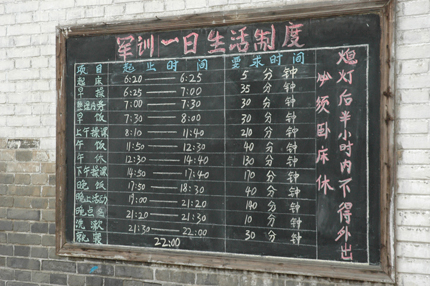 军训一日生活制度
项目 起止时间 要求时间
起床 6:20 —— 6:25 5分钟
早操 6:25 —— 7:00 35分钟
整理内务 7:00 —— 7:30 30分钟
早饭 7:30 —— 8:00 30分钟
上午操课 8:10 —— 11:40 210分钟
午饭 11:50 —— 12:30 40分钟
午休 12:30 —— 14:40 130分钟
下午操课 14:50 —— 17:40 170分钟
晚饭 17:50 —— 18:30 40分钟
晚上活动 19:00 —— 21:20 140分钟
晚点名 21:20 —— 21:30 10分钟
洗漱 21:30 —— 22:00 30分钟
就寝 22:00
熄灯后半小时内不得外出
必须卧床休